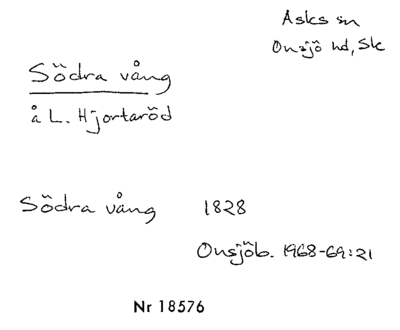 Asks sn
Onsjö hd, Sk
Södra vång
å L. Hjortaröd
Södra vång 1828
Onsjöb. 1968-69:21
Nr 18576